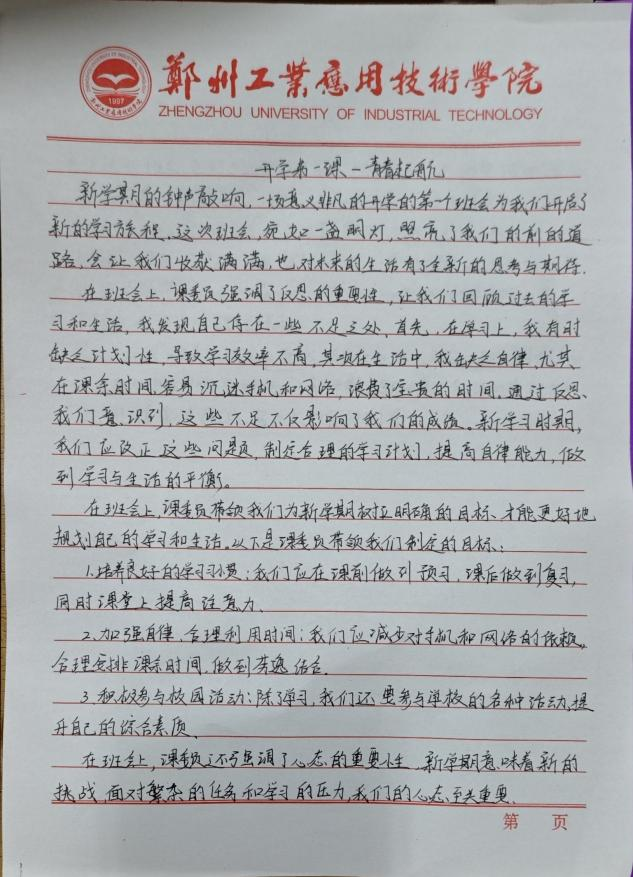 鄭州工業應用技術學院
ZHENGZHOU UNIVERSITY OF INDUSTRIAL TECHNOLOGY
1997
开学第一课-青春起航
新学期的钟声敲响,一场意义非凡的开学的第一个班会为我们开启了
新的学习旅程,这次班会,宛如一盏明灯,照亮了我们的前的道
路,会让我们收获满满,也对未来的生活有了全新的思考与期待.
在班会上,课委员强调了反思的重要性,让我们回顾过去的学
习和生活,我发现自己存在一些不足之处,首先,在学习上,我有时
缺乏计划性,导致学习效率不高,其次在生活中,我缺乏自律,尤其
在课余时间,容易沉迷手机和网络,浪费了宝贵的时间,通过反思,
我们意识到,这些不足不仅影响了我们的成绩。新学习时期,
我们应改正这些问题,制定合理的学习计划,提高自律能力,做
到学习与生活的平衡。
在班会上,课委员带领我们为新学期树立明确的目标、才能更好地
规划自己的学习和生活。以下是课委员带领我们制定的目标:
1.培养良好的学习习惯:我们应在课前做到预习,课后做到复习,
同时课堂上提高注意力.
2.加强自律,合理利用时间:我们应减少对手机和网络的依赖,
合理安排课余时间,做到劳逸结合.
3.积极参与校园活动:除了学习,我们还要参与学校的各种活动,提
升自己的综合素质.
在班会上,课委员还强调了心态的重要性,新学期意味着新的
挑战,面对繁杂的任务和学习的压力,我们的心态至关重要.
第 页